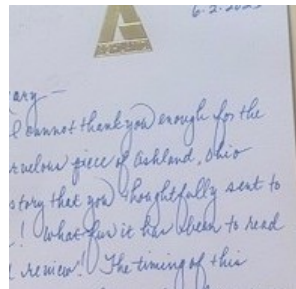 6-2-20
ary —
I cannot thank you enough for the
rvelous piece of Ashland, Ohio
story that you thoughtfully sent to
! What fun it has been to read
d review! The timing of this